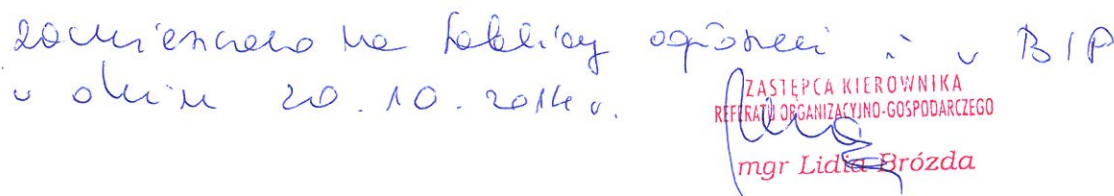 zamieszczono na tablicy ogłoszeń i w BIP
w dniu 20.10.2014 r.
ZASTĘPCA KIEROWNIKA
REFERATU ORGANIZACYJNO-GOSPODARCZEGO
mgr Lidia Brózda